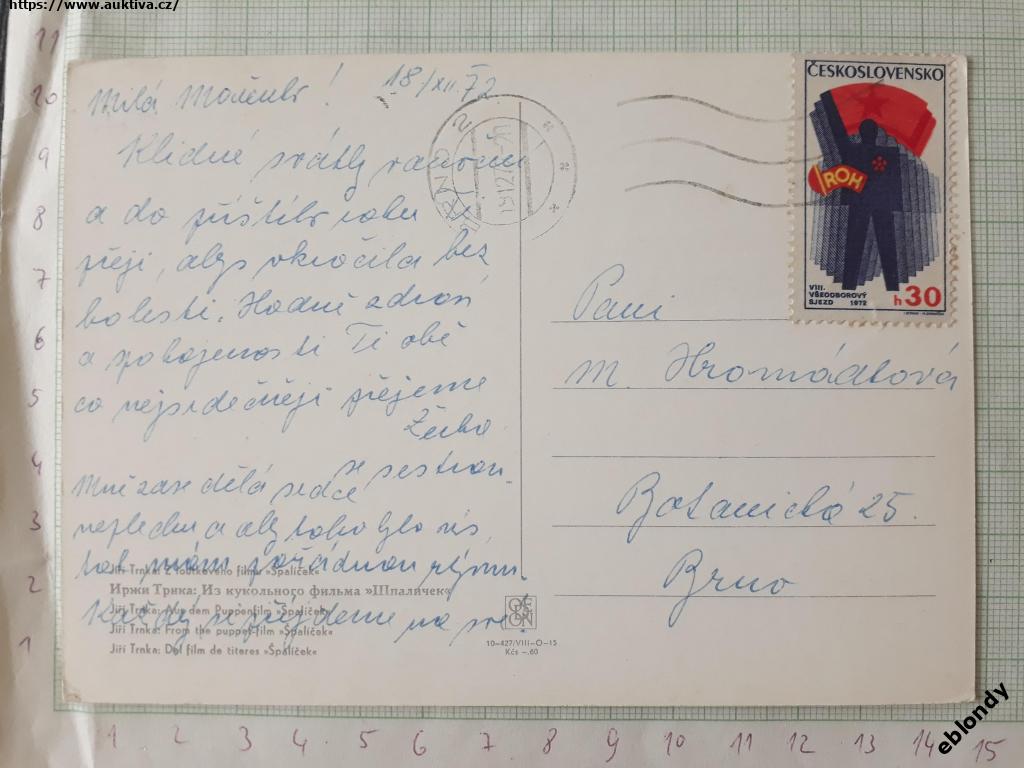 https://www.auktiva.cz/
18/XII 72
Milá
Klidné svátky
a do příštího roku Ti
přeji, abys vkročila bez
bolesti. Hodně zdraví
a spokojenosti Ti obě
co nejsrdečněji přejeme
se sestrou.
Mně zase dělá srdce
neplechu a aby toho bylo víc,
tak mám pořádnou rýmu.
Každý si přijdeme na své!
Jiří Trnka: Z loutkového filmu »Špalíček«
Иржи Трнка: Из кукольного фильма »Шпаличек«
Jiří Trnka: Aus dem Puppenfilm »Špalíček«
Jiří Trnka: From the puppet-film »Špalíček«
Jiří Trnka: Del film de titeres »Špalíček«
10-427/VIII-O-15
Kčs -.60
ČESKOSLOVENSKO
ROH
VIII.
VŠEODBOROVÝ
SJEZD 1972
h 30
BRNO 2
Paní
M. Hromádková
Botanická 25.
Brno
11
10
9
8
7
6
5
4
3
2
1
1 2 3 4 5 6 7 8 9 10 11 12 13 14 15
eblondy